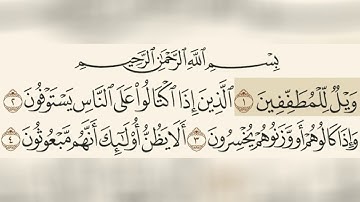 بِسْمِ ٱللَّهِ ٱلرَّحْمَٰنِ ٱلرَّحِيمِ
وَيْلٌ لِّلْمُطَفِّفِينَ ١ ٱلَّذِينَ إِذَا ٱكْتَالُوا۟ عَلَى ٱلنَّاسِ يَسْتَوْفُونَ ٢
وَإِذَا كَالُوهُمْ أَو وَّزَنُوهُمْ يُخْسِرُونَ ٣ أَلَا يَظُنُّ أُو۟لَٰٓئِكَ أَنَّهُم مَّبْعُوثُونَ ٤